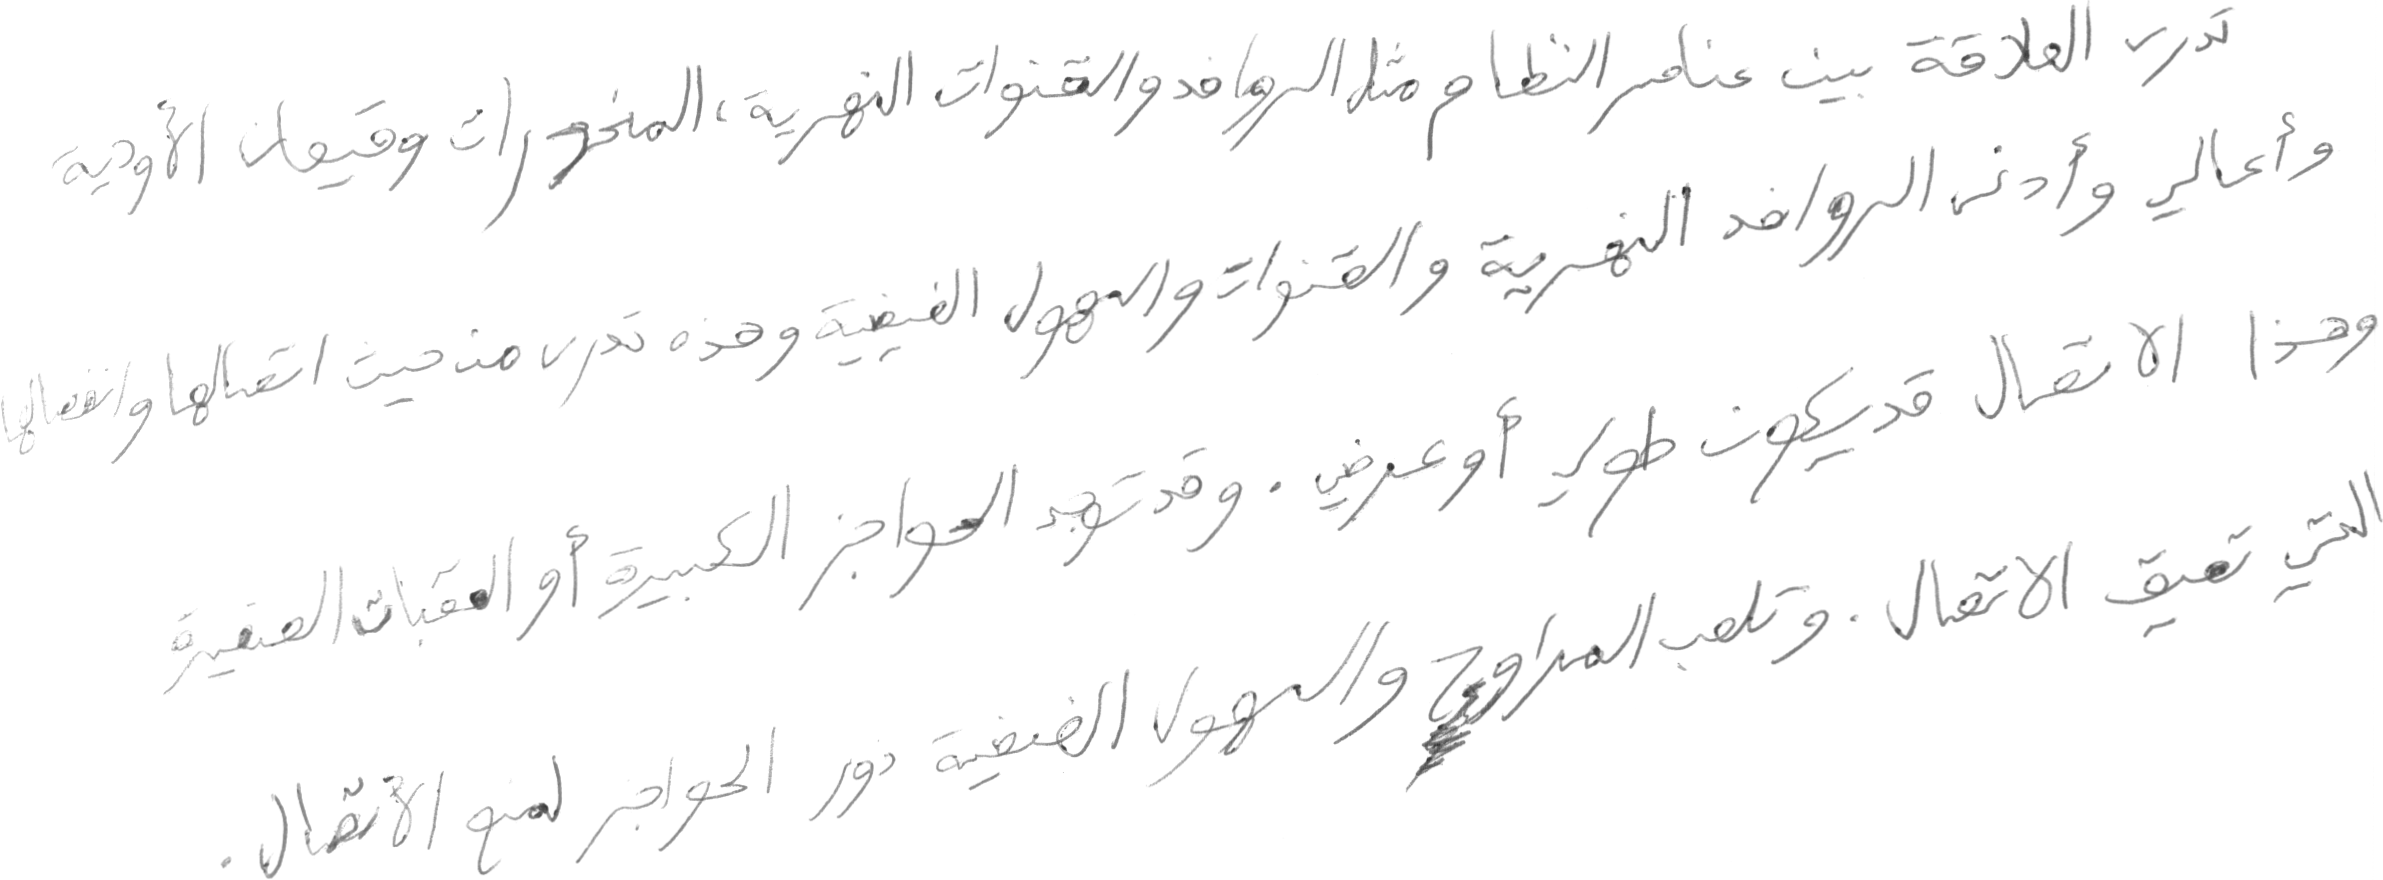 تدرس العلاقة بين عناصر النظام مثل الروافد والقنوات النهرية، المنحدرات وقيعان الأودية
وأعالي وأدنى الروافد النهرية والقنوات والسهول الفيضية وهذه تدرس من حيث اتصالها وانفصالها
وهذا الاتصال قد يكون طولي أو عرضي. وقد توجد الحواجز الكبيرة أو العقبات الصغيرة
التي تعيق الاتصال. وتلعب المراوح والسهول الفيضية دور الحواجز لمنع الأتصال.